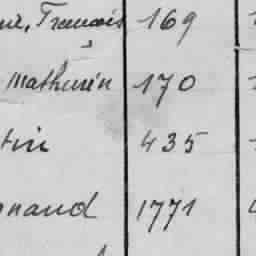 François 169
Mathurin 170
tin 435
nand 1771